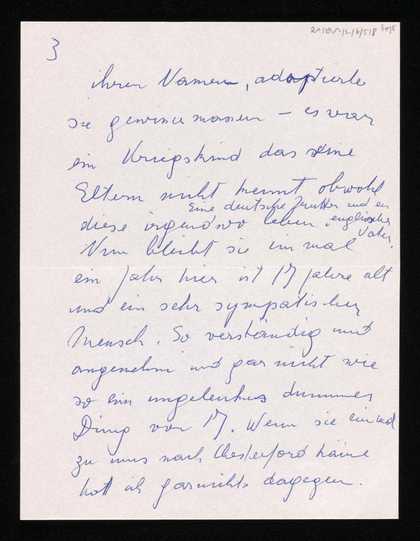 3
ihren Namen, adoptierte
sie gewissermassen – es war
ein Kriegskind das seine
Eltern nicht kennt obwohl
diese irgendwo leben. Eine deutsche Mutter und ein englischer Vater.
Nun bleibt sie einmal
ein Jahr hier ist 17 Jahre alt
und ein sehr sympatischer
Mensch. So verständig und
angenehm und gar nicht wie
so ein dummes
Ding von 17. Wenn sie einmal
zu uns nach Chesterford käme
hätt ich garnichts dagegen.